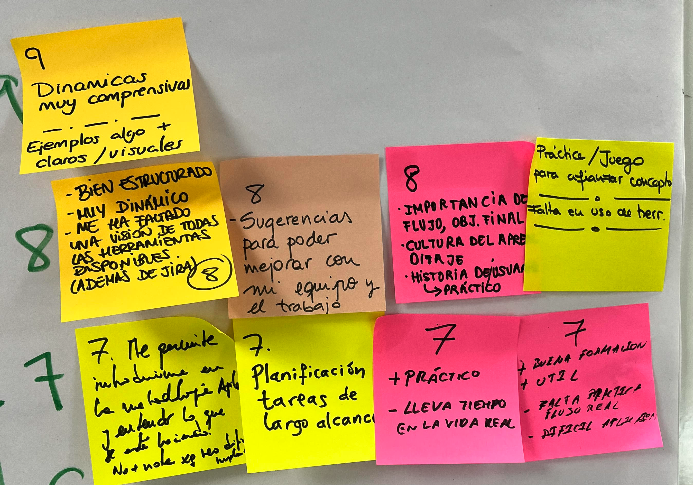 9
Dinamicas
muy comprensivas
Ejemplos algo +
claros / visuales
8
- BIEN ESTRUCTURADO
- MUY DINÁMICO
- ME HA FALTADO
UNA VISIÓN DE TODAS
LAS HERRAMIENTAS
DISPONIBLES
(ADEMAS DE JIRA)
8
8
- Sugerencias
para poder
mejorar con
mi equipo y
el trabajo
8
· IMPORTANCIA DE
FLUJO, OBJ. FINAL
· CULTURA DEL APRE
DITAJE
· HISTORIA DE USUA
↳ PRÁCTICO
Práctica / Juego
para afianzar concepto
Falta en uso de herr.
7
7. Me permite
introducirme en
la metodología
y entender lo que
se está haciendo.
No + nota xq
7.
Planificación
tareas de
largo alcance
7
+ PRÁCTICO
- LLEVA TIEMPO
EN LA VIDA REAL
7
+ BUENA FORMACION
+ UTIL
- FALTA PRACTICA
FLUJO REAL
- DIFICIL